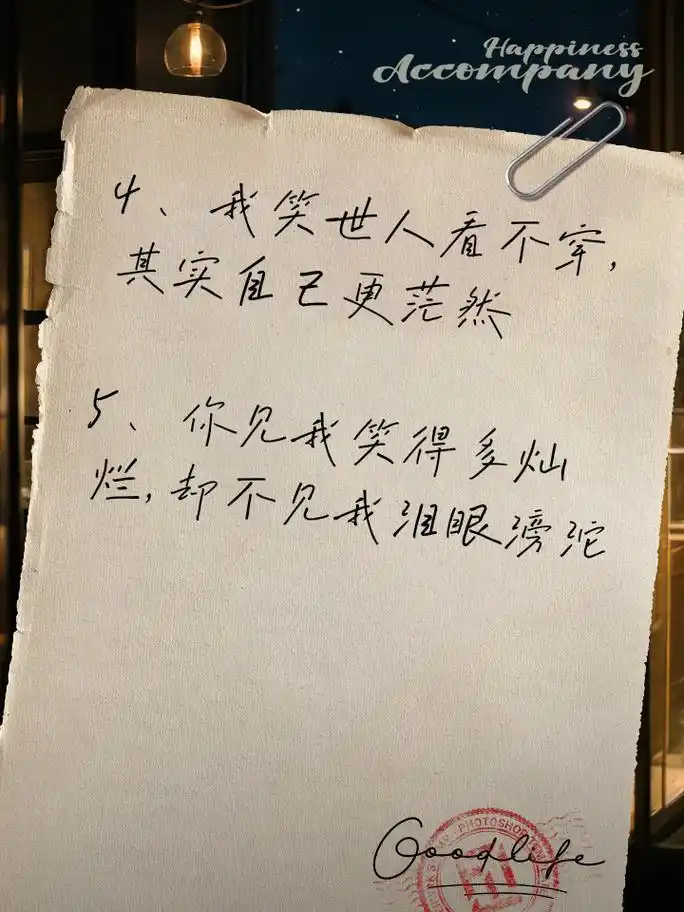 Happiness
Accompany
4、我笑世人看不穿，
其实自己更茫然
5、你见我笑得多灿
烂，却不见我泪眼滂沱
Goodlife